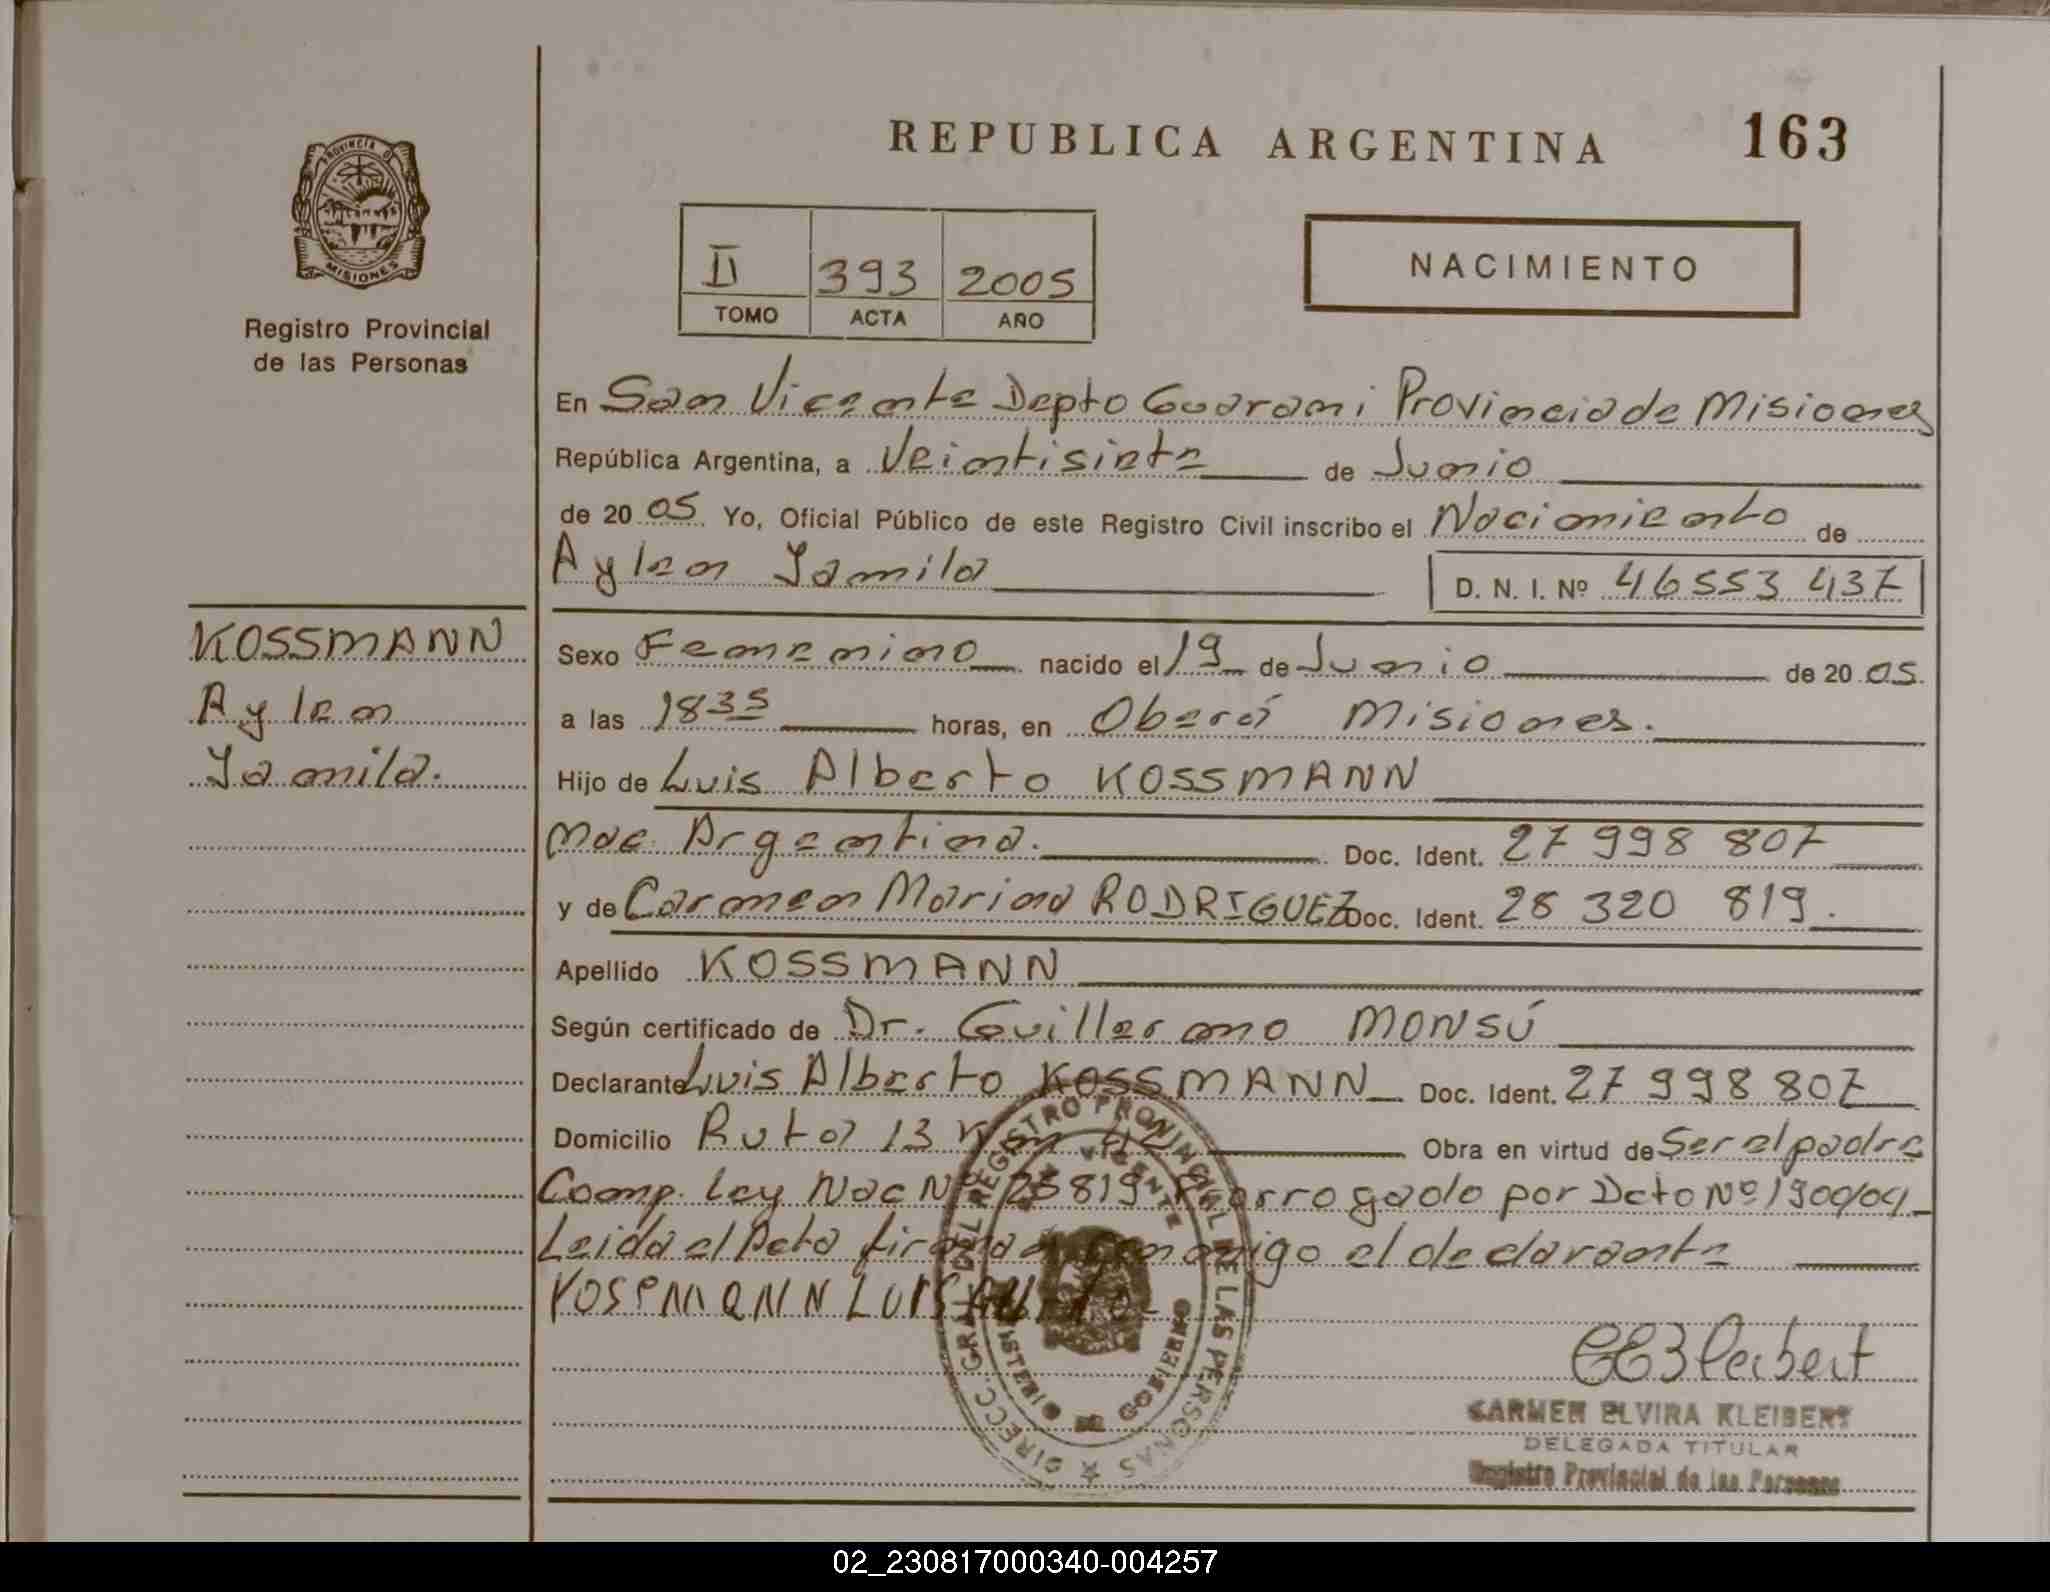 REPUBLICA ARGENTINA 163
PROVINCIA D
MISIONES
Registro Provincial
de las Personas
II 393 2005
TOMO ACTA AÑO
NACIMIENTO
En San Vicente Depto Guarani Provincia de Misiones
República Argentina, a Veintisiete de Junio
de 20 05 Yo, Oficial Público de este Registro Civil inscribo el Nacimiento de
Aylen Yamila
D. N. I. Nº 46 553 437
KOSSMANN
Aylen
Yamila.
Sexo Femenino nacido el 19 de Junio de 20 05.
a las 1835 horas, en Oberá Misiones.
Hijo de Luis Alberto KOSSMANN
Nac. Argentina. Doc. Ident. 27 998 807
y de Carmen Marina RODRIGUEZ Doc. Ident. 28 320 819.
Apellido KOSSMANN
Según certificado de Dr. Guillermo MONSÚ
Declarante Luis Alberto KOSSMANN Doc. Ident. 27 998 807
Domicilio Ruta 13 Km 42 Obra en virtud de Ser el padre
Comp. Ley Nac Nº 25819 Prorrogado por Dcto Nº 1900/04
Leida el Acta firma conmigo el declarante
KOSSMANN LUIS
DIRECC. GRAL DEL REGISTRO PROVINCIAL DE LAS PERSONAS
VICENTE
MINISTERIO DE GOBIERNO
CARMEN ELVIRA KLEIBERT
DELEGADA TITULAR
Registro Provincial de las Personas
02_230817000340-004257